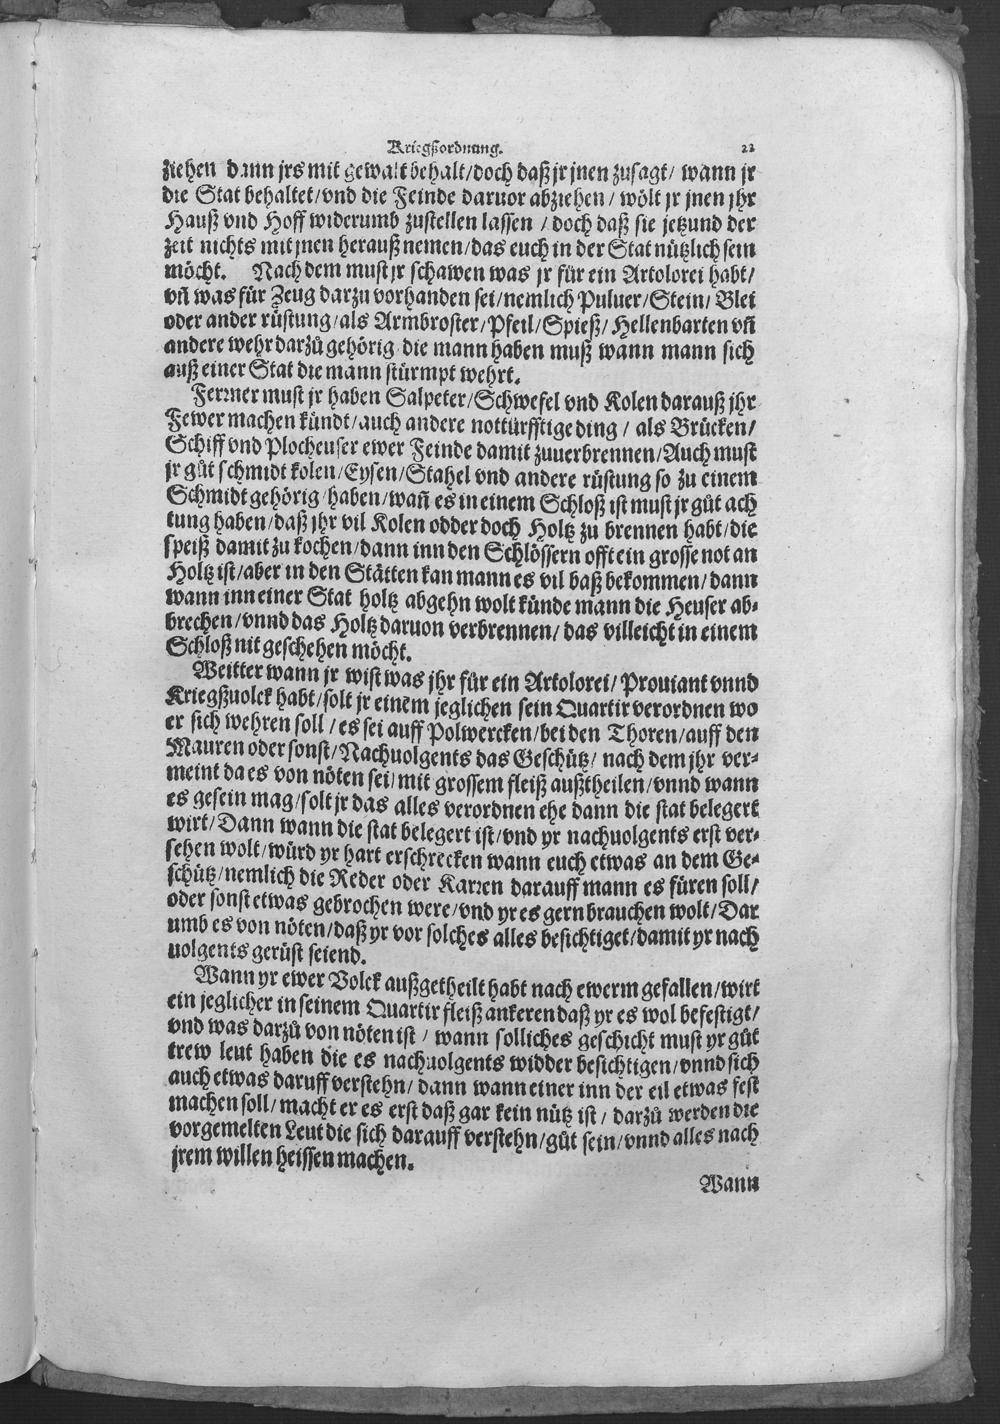 Kriegßordnung. 22
ziehen dann jrs mit gewalt behalt/doch daß jr jnen zusagt/ wann jr
die Stat behaltet/vnd die Feinde daruor abziehen/ wölt jr jnen jhr
Hauß vnd Hoff widerumb zustellen lassen / doch daß sie jetzund der
zeit nichts mit jnen herauß nemen/das euch in der Stat nützlich sein
möcht. Nach dem must jr schawen was jr für ein Artolorei habt/
vñ was für Zeug darzu vorhanden sei/nemlich Puluer/Stein/ Blei
oder ander rüstung/als Armbroster/Pfeil/Spieß/ Hellenbarten vñ
andere wehr darzů gehörig die mann haben muß wann mann sich
auß einer Stat die mann stürmpt wehrt.
Ferrner must jr haben Salpeter/Schwefel vnd Kolen darauß jhr
Fewer machen kündt/auch andere notturfftige ding / als Brücken/
Schiff vnd Plocheuser ewer Feinde damit zuuerbrennen/Auch must
jr gůt schmidt kolen/Eysen/Stahel vnd andere rüstung so zu einem
Schmidt gehörig/haben/wañ es in einem Schloß ist must jr gůt ach
tung haben/daß jhr vil Kolen odder doch Holtz zu brennen habt/die
speiß damit zu kochen/dann inn den Schlössern offt ein grosse not an
Holtz ist/aber in den Stätten kan mann es vil baß bekommen/dann
wann inn einer Stat holtz abgehn wolt künde mann die Heuser ab-
brechen/vnnd das Holtz daruon verbrennen/ das villeicht in einem
Schloß nit geschehen möcht.
Weitter wann jr wist was jhr für ein Artolorei/ Prouiant vnnd
Kriegßuolck habt/solt jr einem jeglichen sein Quartir verordnen wo
er sich wehren soll / es sei auff Polwercken/bei den Thoren/auff den
Mauren oder sonst/Nachuolgents das Geschütz/ nach dem jhr ver-
meint da es von nöten sei/mit grossem fleiß außtheilen/vnnd wann
es gesein mag/solt jr das alles verordnen ehe dann die stat belegert
wirt/Dann wann die stat belegert ist/vnd yr nachuolgents erst ver-
sehen wolt/würd yr hart erschrecken wann euch etwas an dem Ge-
schütz/nemlich die Reder oder Karren darauff mann es füren soll/
oder sonst etwas gebrochen were/vnd yr es gern brauchen wolt/Dar
umb es von nöten/daß yr vor solches alles besichtiget/damit yr nach
uolgents gerüst seiend.
Wann yr ewer Volck außgetheilt habt nach ewerm gefallen/wirt
ein jeglicher in seinem Quartir fleiß ankeren daß yr es wol befestigt/
vnd was darzů von nöten ist / wann solliches geschicht must yr gůt
trew leut haben die es nachuolgents widder besichtigen/vnnd sich
auch etwas daruff verstehn/ dann wann einer inn der eil etwas fest
machen soll/ macht er es erst daß gar kein nütz ist / darzů werden die
vorgemelten Leut die sich darauff verstehn/gůt sein/vnnd alles nach
jrem willen heissen machen.
Wann